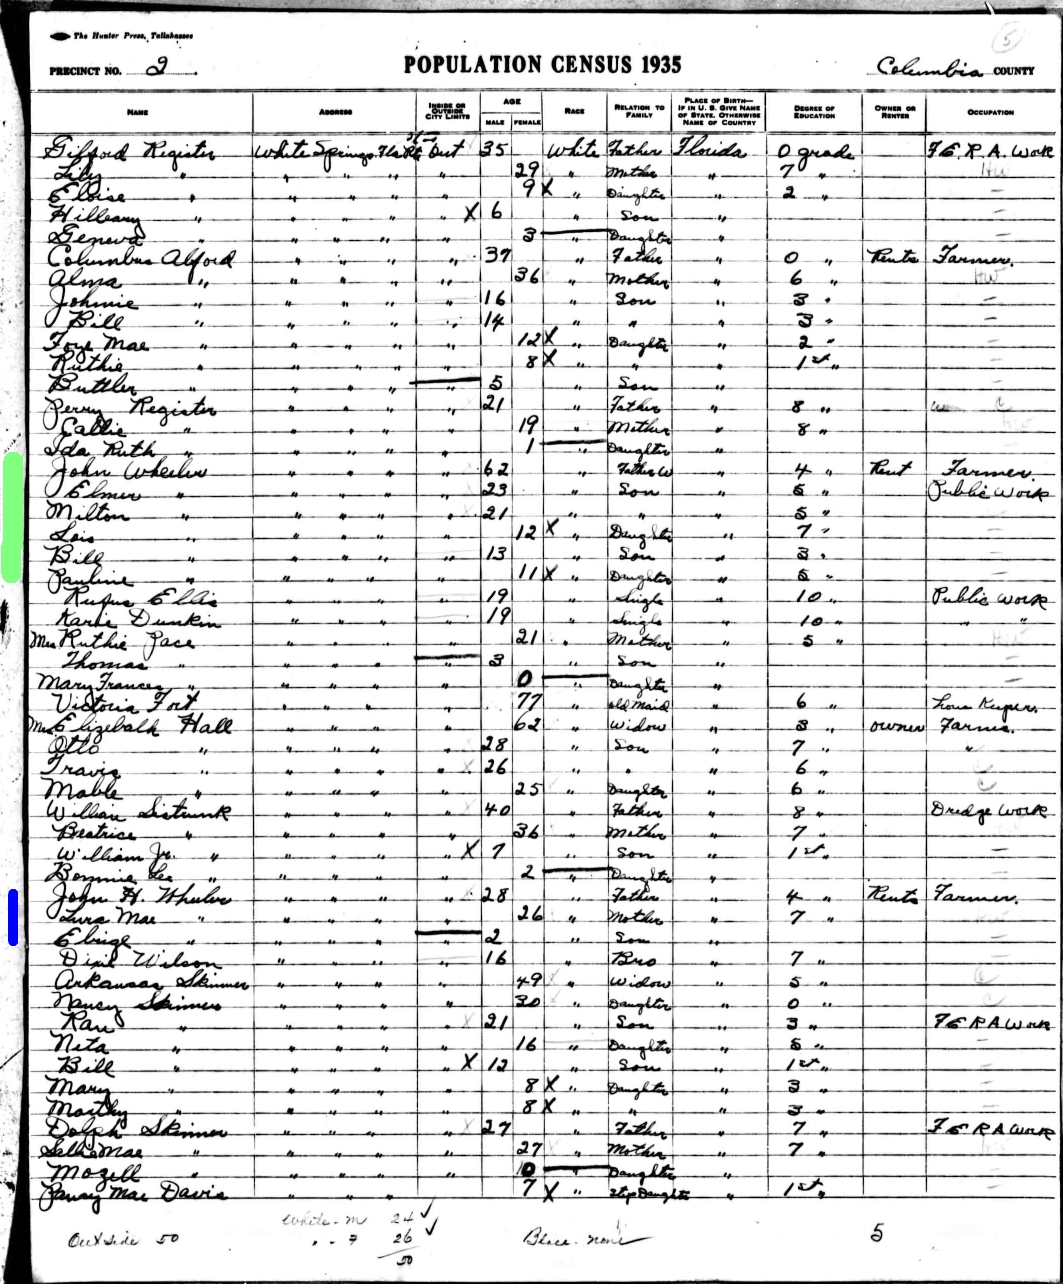 The Hunter Press, Tallahassee
5
PRECINCT NO. 2 POPULATION CENSUS 1935 Columbia COUNTY
NAME ADDRESS INSIDE OR OUTSIDE CITY LIMITS AGE MALE FEMALE RACE RELATION TO FAMILY PLACE OF BIRTH—IF IN U. S. GIVE NAME OF STATE, OTHERWISE NAME OF COUNTRY DEGREE OF EDUCATION OWNER OR RENTER OCCUPATION
Gifford Register White Springs, Fla Out 35 White Father Florida 0 grade F.E.R.A. Work
Lily " " " " " 29 " Mother " 7 " HW
Eloise " " " " " 9 X " Daughter " 2 " —
Hilleary " " " " " X 6 " Son " —
Geneva " " " " " 3 " Daughter " —
Columbus Alford " " " " 37 " Father " 0 " Rents Farmer.
Alma " " " " " 36 " Mother " 6 " HW
Johnie " " " " " 16 " Son " 3 " —
Bill " " " " " 14 " " " 3 " —
Foye Mae " " " " " 12 X " Daughter " 2 " —
Ruthie " " " " " 8 X " " " 1st " —
Buttler " " " " " 5 " Son " —
Perry Register " " " " 21 " Father " 8 "
Callie " " " " " 19 " Mother " 8 "
Ida Ruth " " " " " 1 " Daughter " —
John Wheeler " " " " 62 " Father W " 4 " Rent Farmer.
Elmer " " " " " 23 " Son " 5 " Public Work
Milton " " " " " 21 " " " 5 " —
Lois " " " " " 12 X " Daughter " 7 " —
Bill " " " " " 13 " Son " 3 " —
Pauline " " " " " 11 X " Daughter " 5 " —
Rufus Ellis " " " " 19 " Single " 10 " Public Work
Karie Dunkin " " " " 19 " Single " 10 " " "
Mrs Ruthie Pace " " " " 21 " Mother " 5 " HW
Thomas " " " " " 3 " Son " —
Mary Frances " " " " " 0 " Daughter " —
Victoria Fort " " " " 77 " old maid " 6 " House Keeper.
Mrs Elizebath Hall " " " " 62 " Widow " 3 " owner Farms.
Otto " " " " " 28 " Son " 7 " "
Travis " " " " " 26 " " " 6 "
Mable " " " " " 25 " Daughter " 6 "
Willian Sistrunk " " " " 40 " Father " 8 " Dredge Work
Beatrice " " " " " 36 " Mother " 7 "
William Jr. " " " " " X 7 " Son " 1st " —
Bonnie Lee " " " " " 2 " Daughter " —
John H. Wheeler " " " " 28 " Father " 4 " Rents Farmer.
Lura Mae " " " " " 26 " Mother " 7 "
" " " " " 2 " Son " —
Wilson " " " " 16 " Bro " 7 " —
Arkansas Skinner " " " " 49 " Widow " 5 "
Nancy Skinner " " " " 30 " Daughter " 0 "
" " " " " 21 " Son " 3 " F E R A Work
Neta " " " " " 16 " Daughter " 5 " —
Bill " " " " " X 12 " Son " 1st " —
Mary " " " " " 8 X " Daughter " 3 " —
Marthy " " " " " 8 X " " " 3 " —
Dolph Skinner " " " " 27 " Father " 7 " F E R A Work
Sallie Mae " " " " " 27 " Mother " 7 "
Mozell " " " " " 0 " Daughter " —
Pansy Mae Davis " " " " 7 X " Step Daughter " 1st " —
White - M 24 ✓
Outside 50 " - F 26 ✓ Black - none 5
50